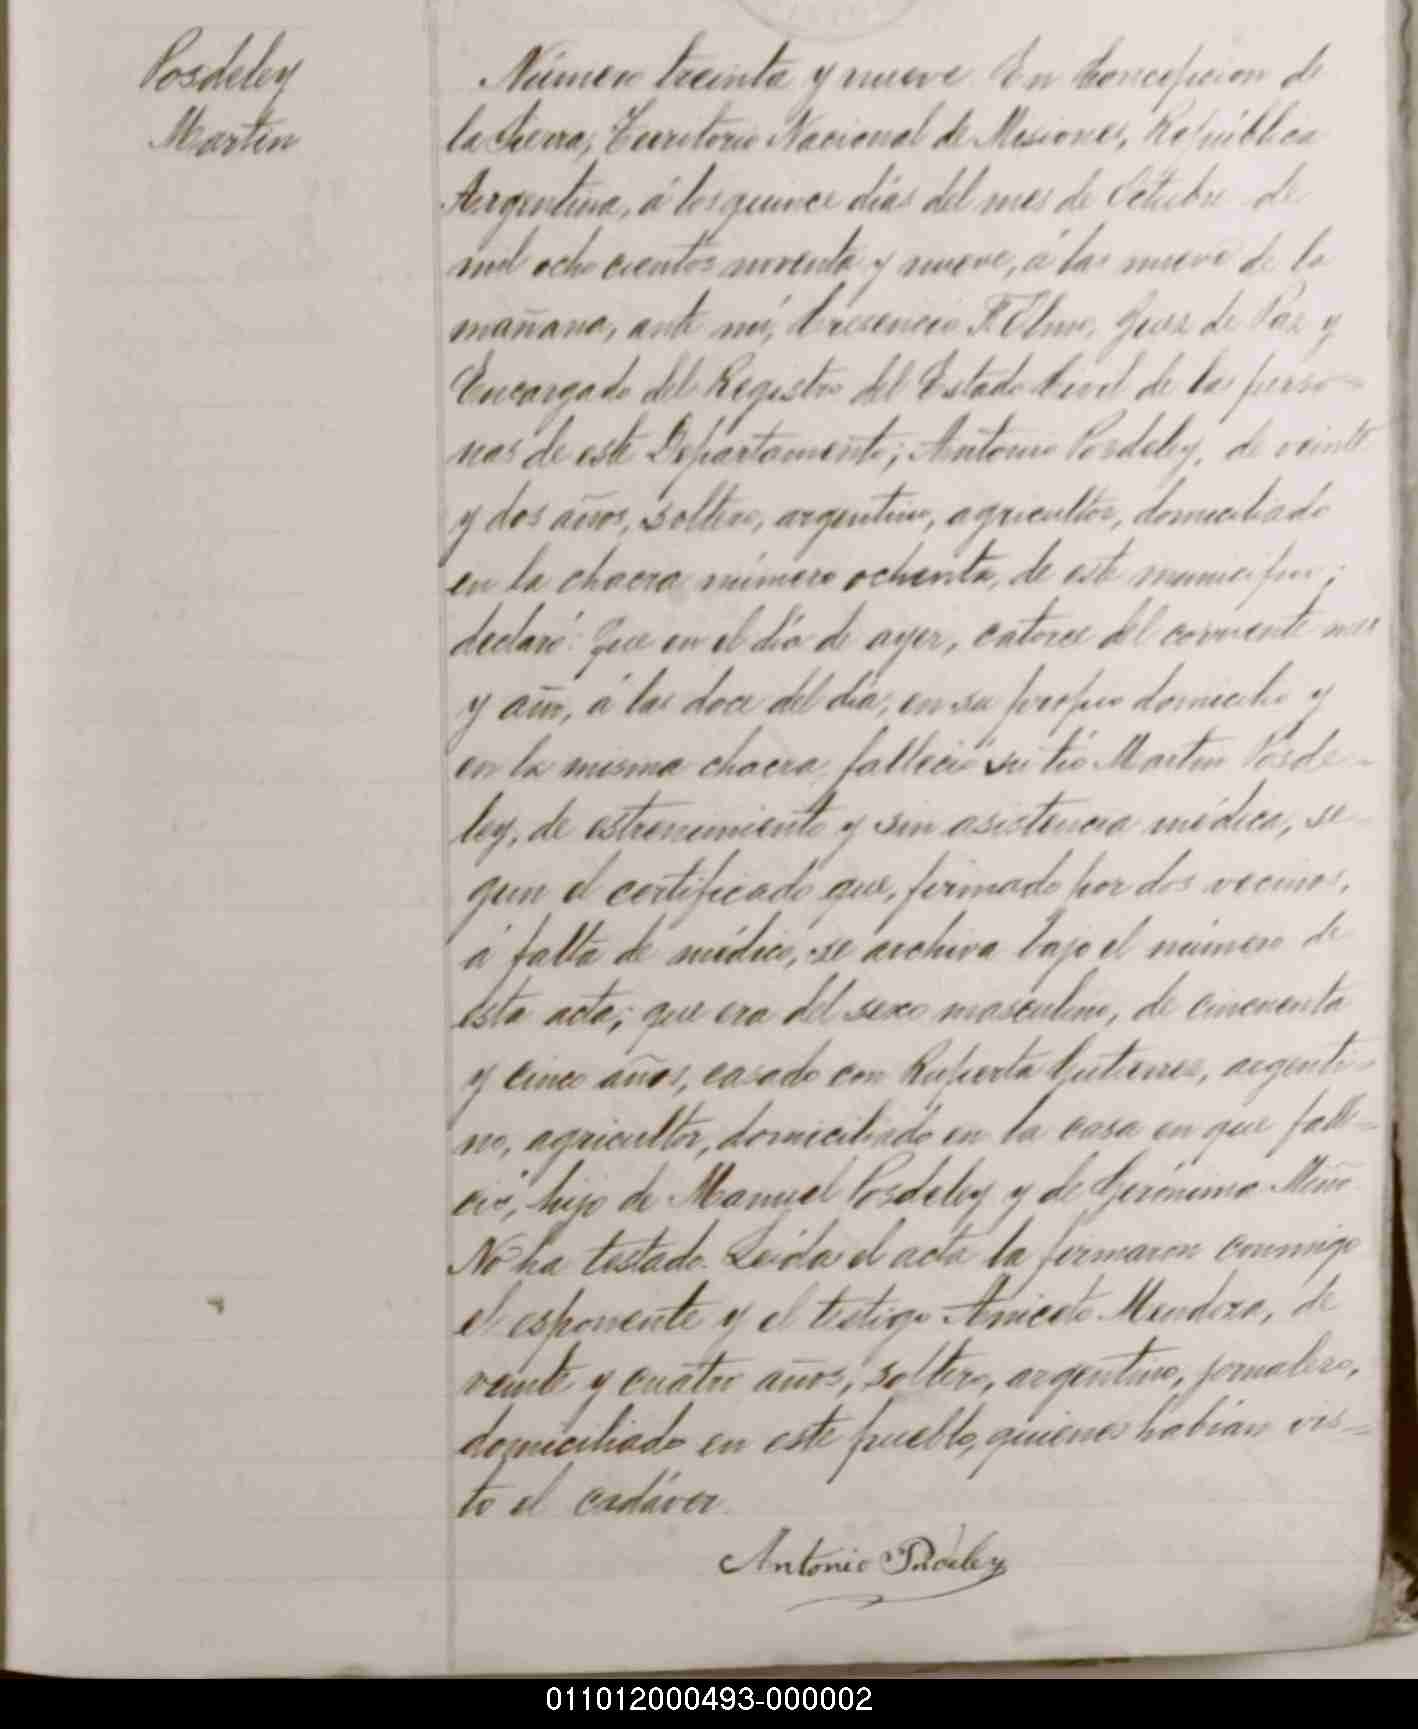 Posdeley
Martin
Número treinta y nueve. En Concepcion de
la Sierra, Territorio Nacional de Misiones, República
Argentina, á los quince dias del mes de Octubre de
mil ocho cientos noventa y nueve, á las nueve de la
mañana, ante mí, F. Juez de Paz y
Encargado del Registro del Estado Civil de las perso-
nas de este Departamento; Antonio Posdeley, de veinte
y dos años, soltero, argentino, agricultor, domiciliado
en la chacra número ochenta, de este municipio;
declaró: Que en el día de ayer, catorce del corriente mes
y año, á las doce del día, en su propio domicilio y
en la misma chacra, falleció su tío Martin Posde-
ley, de estrenimiento y sin asistencia médica, se-
gun el certificado que, firmado por dos vecinos,
á falta de médico, se archiva bajo el número de
esta acta; que era del sexo masculino, de cincuenta
y cinco años, casado con Ruperta Gutierrez, argenti-
no, agricultor, domiciliado en la casa en que falle-
ció, hijo de Manuel Posdeley y de Gerónima
No ha testado. Leida el acta la firmaron conmigo
el esponente y el testigo Aniceto Mendoza, de
veinte y cuatro años, soltero, argentino, jornalero,
domiciliado en este pueblo, quienes habían vis-
to el cadáver.
Antonio Posdeley
011012000493-000002